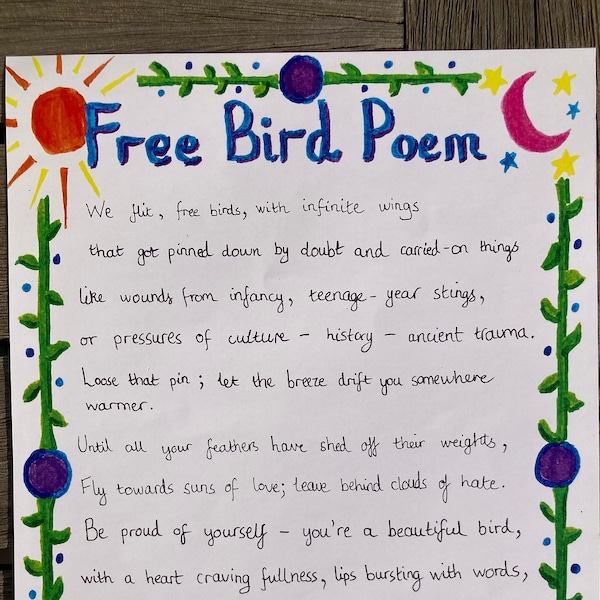 Free Bird Poem
We flit, free birds, with infinite wings
that got pinned down by doubt and carried-on things
like wounds from infancy, teenage-year stings,
or pressures of culture - history - ancient trauma.
Loose that pin; let the breeze drift you somewhere
warmer.
Until all your feathers have shed off their weights,
Fly towards suns of love; leave behind clouds of hate.
Be proud of yourself - you're a beautiful bird,
with a heart craving fullness, lips bursting with words,